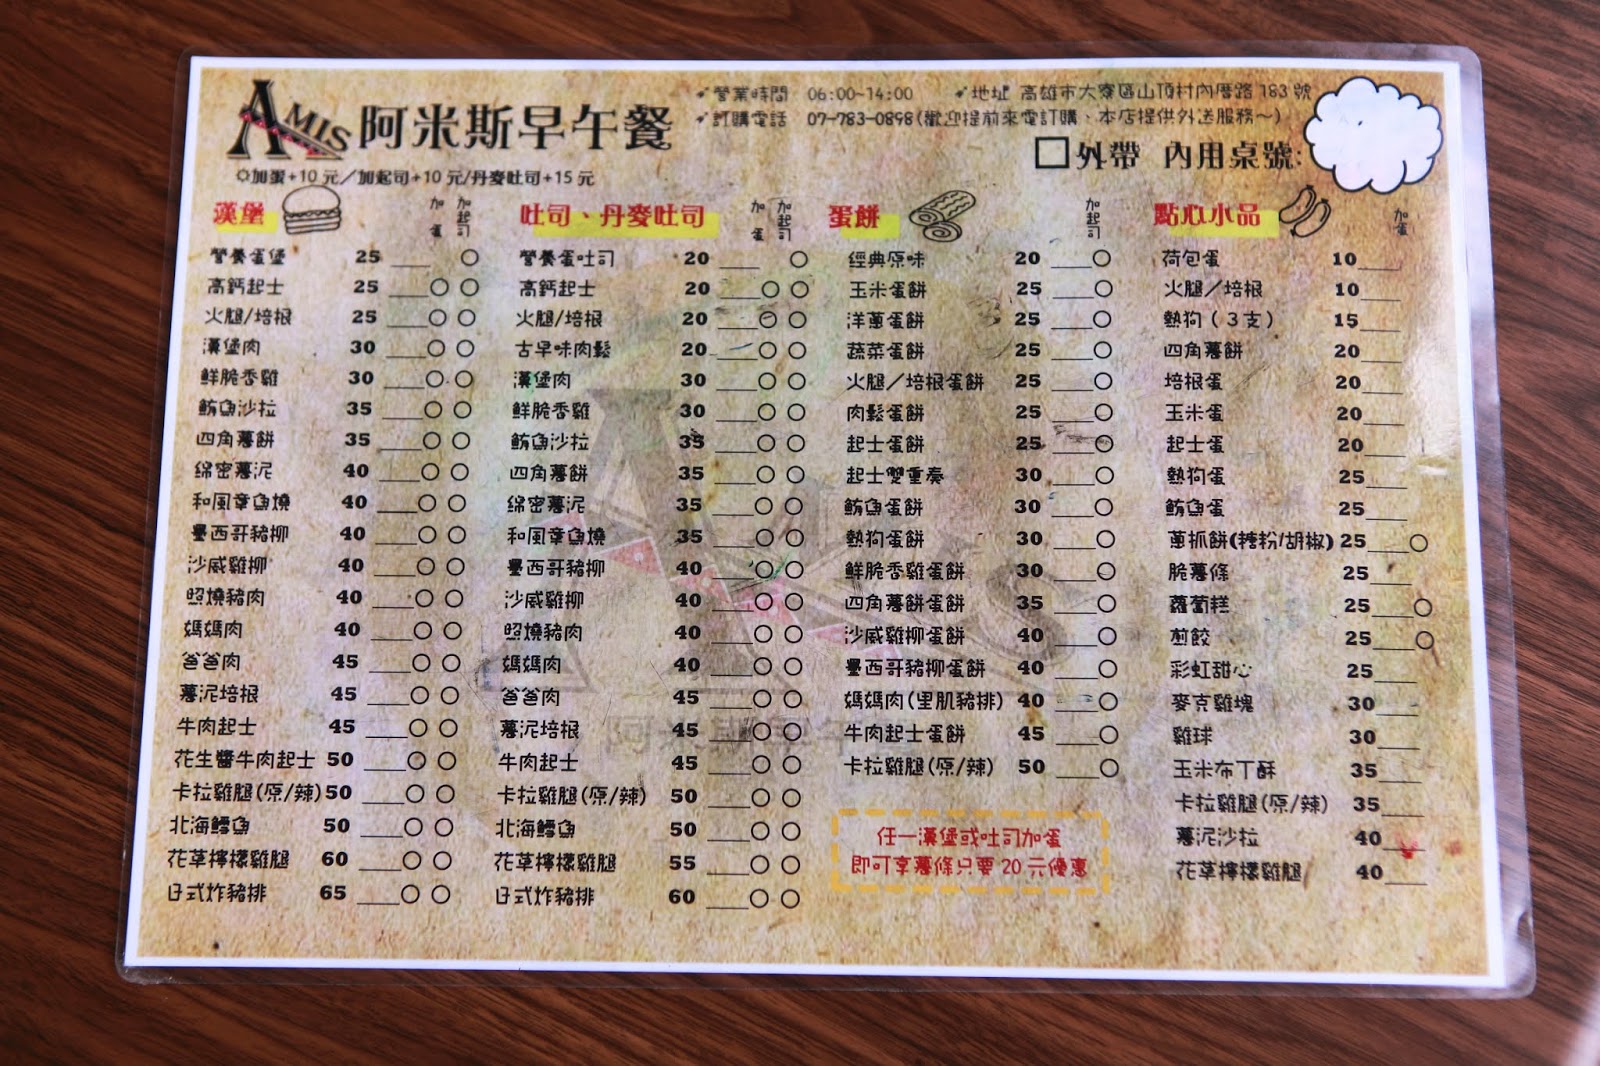 AMIS 阿米斯早午餐
營業時間 06:00~14:00 地址 高雄市大寮區山頂村內厝路 183 號
訂購電話 07-783-0898(歡迎提前來電訂購、本店提供外送服務~)
□外帶 內用桌號:
☼加蛋+10 元/加起司+10 元/丹麥吐司+15 元
漢堡 加蛋 加起司
營養蛋堡 25 ____ ○
高鈣起士 25 ____○ ○
火腿/培根 25 ____○ ○
漢堡肉 30 ____○ ○
鮮脆香雞 30 ____○ ○
鮪魚沙拉 35 ____○ ○
四角薯餅 35 ____○ ○
綿密薯泥 40 ____○ ○
和風章魚燒 40 ____○ ○
墨西哥豬柳 40 ____○ ○
沙威雞柳 40 ____○ ○
照燒豬肉 40 ____○ ○
媽媽肉 40 ____○ ○
爸爸肉 45 ____○ ○
薯泥培根 45 ____○ ○
牛肉起士 45 ____○ ○
花生醬牛肉起士 50 ____○ ○
卡拉雞腿(原/辣) 50 ____○ ○
北海鱈魚 50 ____○ ○
花草檸檬雞腿 60 ____○ ○
日式炸豬排 65 ____○ ○
吐司、丹麥吐司 加蛋 加起司
營養蛋吐司 20 ____ ○
高鈣起士 20 ____○ ○
火腿/培根 20 ____○ ○
古早味肉鬆 20 ____○ ○
漢堡肉 30 ____○ ○
鮮脆香雞 30 ____○ ○
鮪魚沙拉 35 ____○ ○
四角薯餅 35 ____○ ○
綿密薯泥 35 ____○ ○
和風章魚燒 35 ____○ ○
墨西哥豬柳 40 ____○ ○
沙威雞柳 40 ____○ ○
照燒豬肉 40 ____○ ○
媽媽肉 40 ____○ ○
爸爸肉 45 ____○ ○
薯泥培根 45 ____○ ○
牛肉起士 45 ____○ ○
卡拉雞腿(原/辣) 50 ____○ ○
北海鱈魚 50 ____○ ○
花草檸檬雞腿 55 ____○ ○
日式炸豬排 60 ____○ ○
蛋餅 加起司
經典原味 20 ____○
玉米蛋餅 25 ____○
洋蔥蛋餅 25 ____○
蔬菜蛋餅 25 ____○
火腿/培根蛋餅 25 ____○
肉鬆蛋餅 25 ____○
起士蛋餅 25 ____○
起士雙重奏 30 ____○
鮪魚蛋餅 30 ____○
熱狗蛋餅 30 ____○
鮮脆香雞蛋餅 30 ____○
四角薯餅蛋餅 35 ____○
沙威雞柳蛋餅 40 ____○
墨西哥豬柳蛋餅 40 ____○
媽媽肉(里肌豬排) 40 ____○
牛肉起士蛋餅 45 ____○
卡拉雞腿(原/辣) 50 ____○
任一漢堡或吐司加蛋
即可享薯條只要 20 元優惠
點心小品 加蛋
荷包蛋 10____
火腿/培根 10____
熱狗(3支) 15____
四角薯餅 20____
培根蛋 20____
玉米蛋 20____
起士蛋 20____
熱狗蛋 25____
鮪魚蛋 25____
蔥抓餅(糖粉/胡椒) 25____○
脆薯條 25____
蘿蔔糕 25____○
煎餃 25____○
彩虹甜心 25____
麥克雞塊 30____
雞球 30____
玉米布丁酥 35____
卡拉雞腿(原/辣) 35____
薯泥沙拉 40____
花草檸檬雞腿 40____